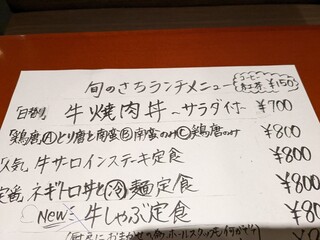 旬のさちランチメニュー
コーヒー 紅茶 ¥150
「日替り」 牛焼肉丼 サラダ付 ¥700
「鶏唐」Ⓐとり唐と南蛮Ⓑ南蛮のみⒸ鶏唐のみ ¥800
「人気」牛サーロインステーキ定食 ¥800
定番 ネギトロ丼と冷麺定食 ¥800
New 牛しゃぶ定食 ¥8